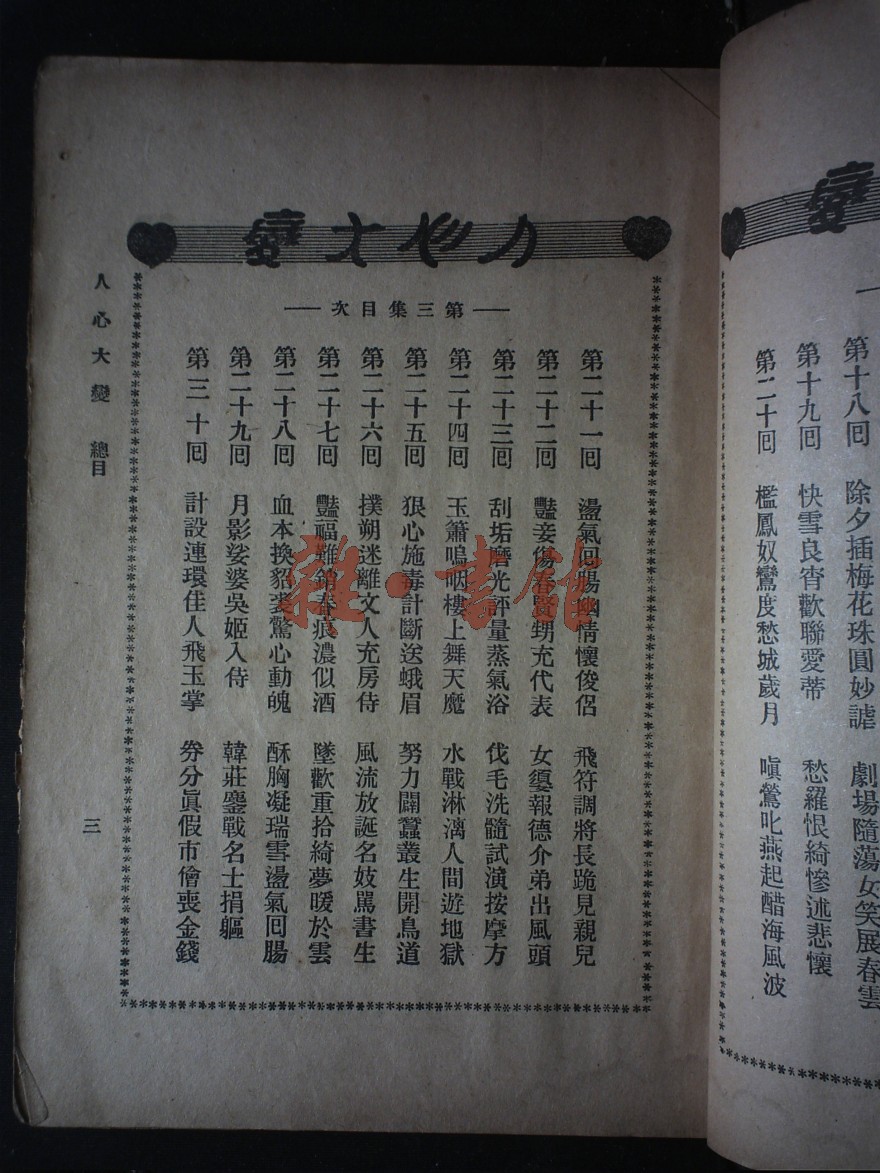 變
第十八回　除夕插梅花珠圓妙謔　劇場隨蕩女笑展春雲
第十九回　快雪良宵歡聯愛蒂　愁羅恨綺慘述悲懷
第二十回　檻鳳奴鸞度愁城歲月　嗔鶯叱燕起醋海風波
人心大變
第三集目次
第二十一回　盪氣回腸幽情懷俊侶　飛符調將長跪見親兒
第二十二回　豔妾傷春賢甥充代表　女嬃報德介弟出風頭
第二十三回　刮垢磨光評量蒸氣浴　伐毛洗髓試演按摩方
第二十四回　玉簫嗚咽樓上舞天魔　水戰淋漓人間遊地獄
第二十五回　狠心施毒計斷送蛾眉　努力闢蠶叢生開鳥道
第二十六回　撲朔迷離文人充房侍　風流放誕名妓罵書生
第二十七回　豔福難銷春痕濃似酒　墜歡重拾綺夢暖於雲
第二十八回　血本換貂裘驚心動魄　酥胸凝瑞雪盪氣回腸
第二十九回　月影娑婆吳姬入侍　韓莊鏖戰名士捐軀
第三十回　計設連環佳人飛玉掌　券分眞假市儈喪金錢
人心大變　總目
三
雜·書館